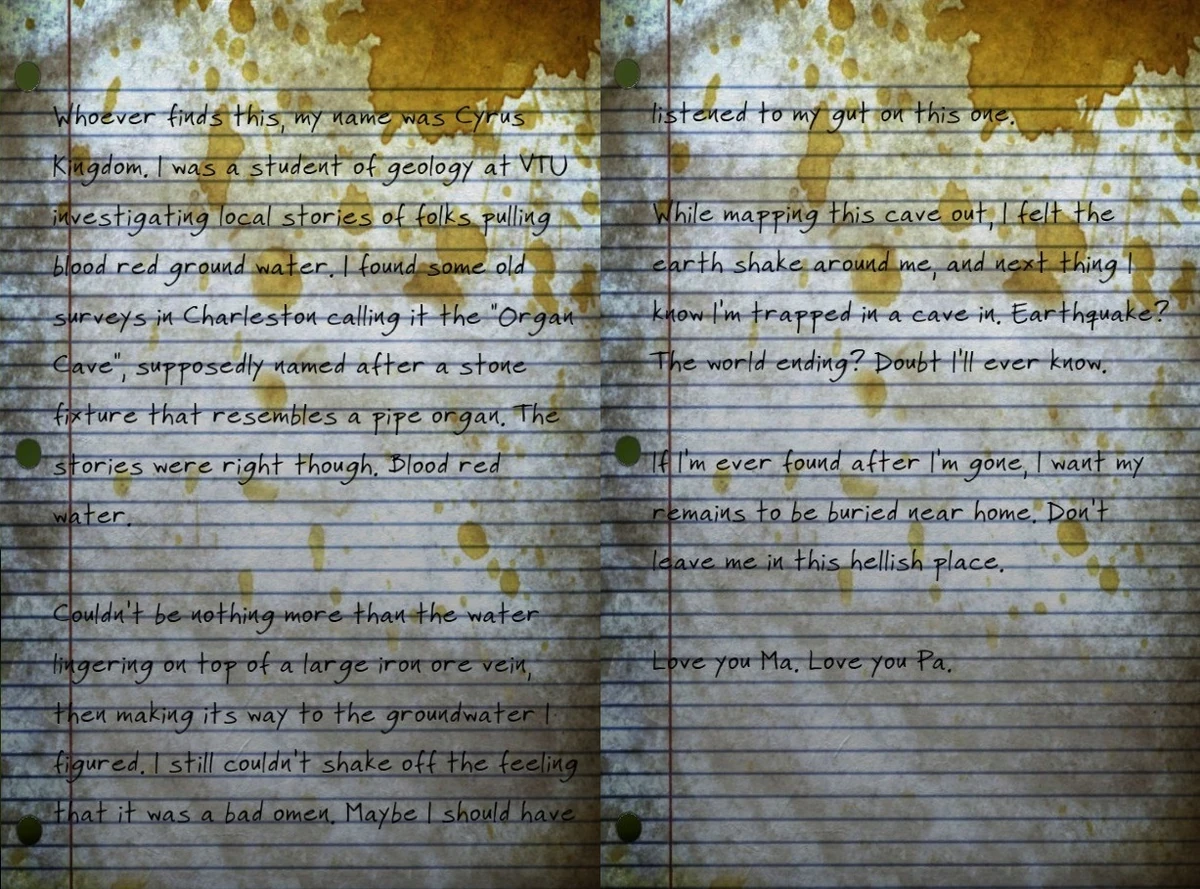 Whoever finds this, my name was Cyrus
Kingdom. I was a student of geology at VTU
investigating local stories of folks pulling
blood red ground water. I found some old
surveys in Charleston calling it the "Organ
Cave", supposedly named after a stone
fixture that resembles a pipe organ. The
stories were right though. Blood red
water.
Couldn't be nothing more than the water
lingering on top of a large iron ore vein,
then making its way to the groundwater I
figured. I still couldn't shake off the feeling
that it was a bad omen. Maybe I should have
listened to my gut on this one.
While mapping this cave out, I felt the
earth shake around me, and next thing I
know I'm trapped in a cave in. Earthquake?
The world ending? Doubt I'll ever know.
If I'm ever found after I'm gone, I want my
remains to be buried near home. Don't
leave me in this hellish place.
Love you Ma. Love you Pa.